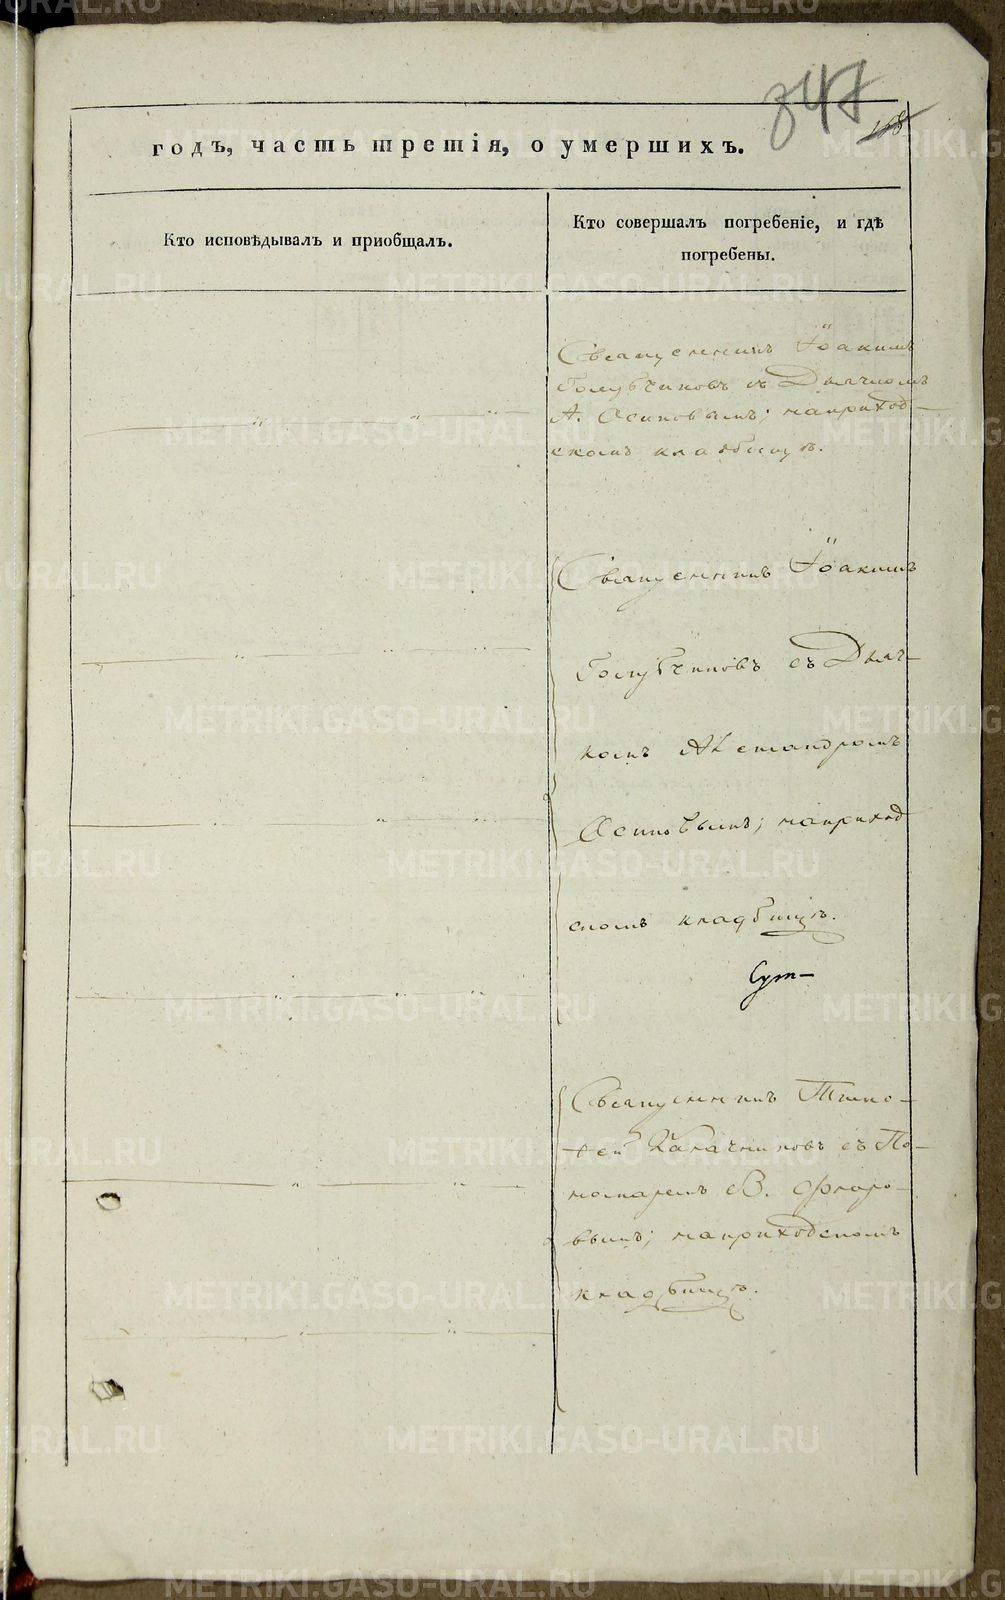 847
158
годъ, часть третія, о умершихъ.
Кто исповѣдывалъ и приобщалъ.
Кто совершалъ погребеніе, и гдѣ
погребены.
Священникъ Іоакимъ
Голубчиковъ съ Дьячкомъ
А. Осиповымъ; наприход-
скомъ кладбищѣ.
Священникъ Іоакимъ
Голубчиковъ съ Дьяч-
комъ Александромъ
Осиповымъ; наприход
скомъ кладбищѣ.
Священникъ Тимо-
ѳей Калачниковъ съ По-
номаремъ В. Флоро-
вымъ; наприходскомъ
кладбищѣ.
METRIKI.GASO-URAL.RU